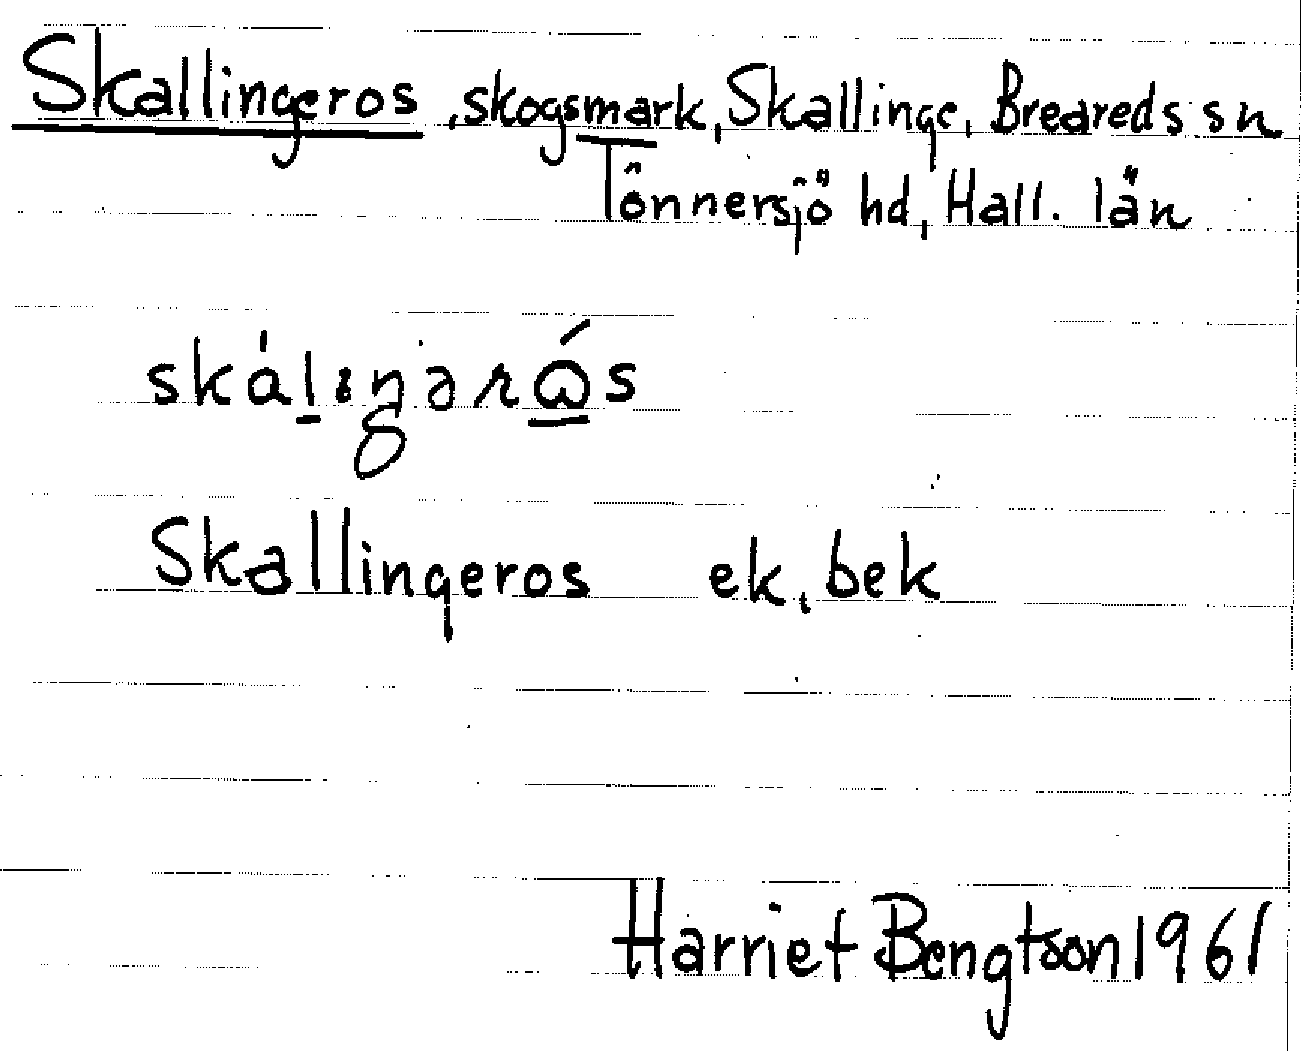 Skallingeros, skogsmark, Skallinge, Breareds sn
Tönnersjö hd, Hall. län
Skallingeros ek, bek
Harriet Bengtson 1961